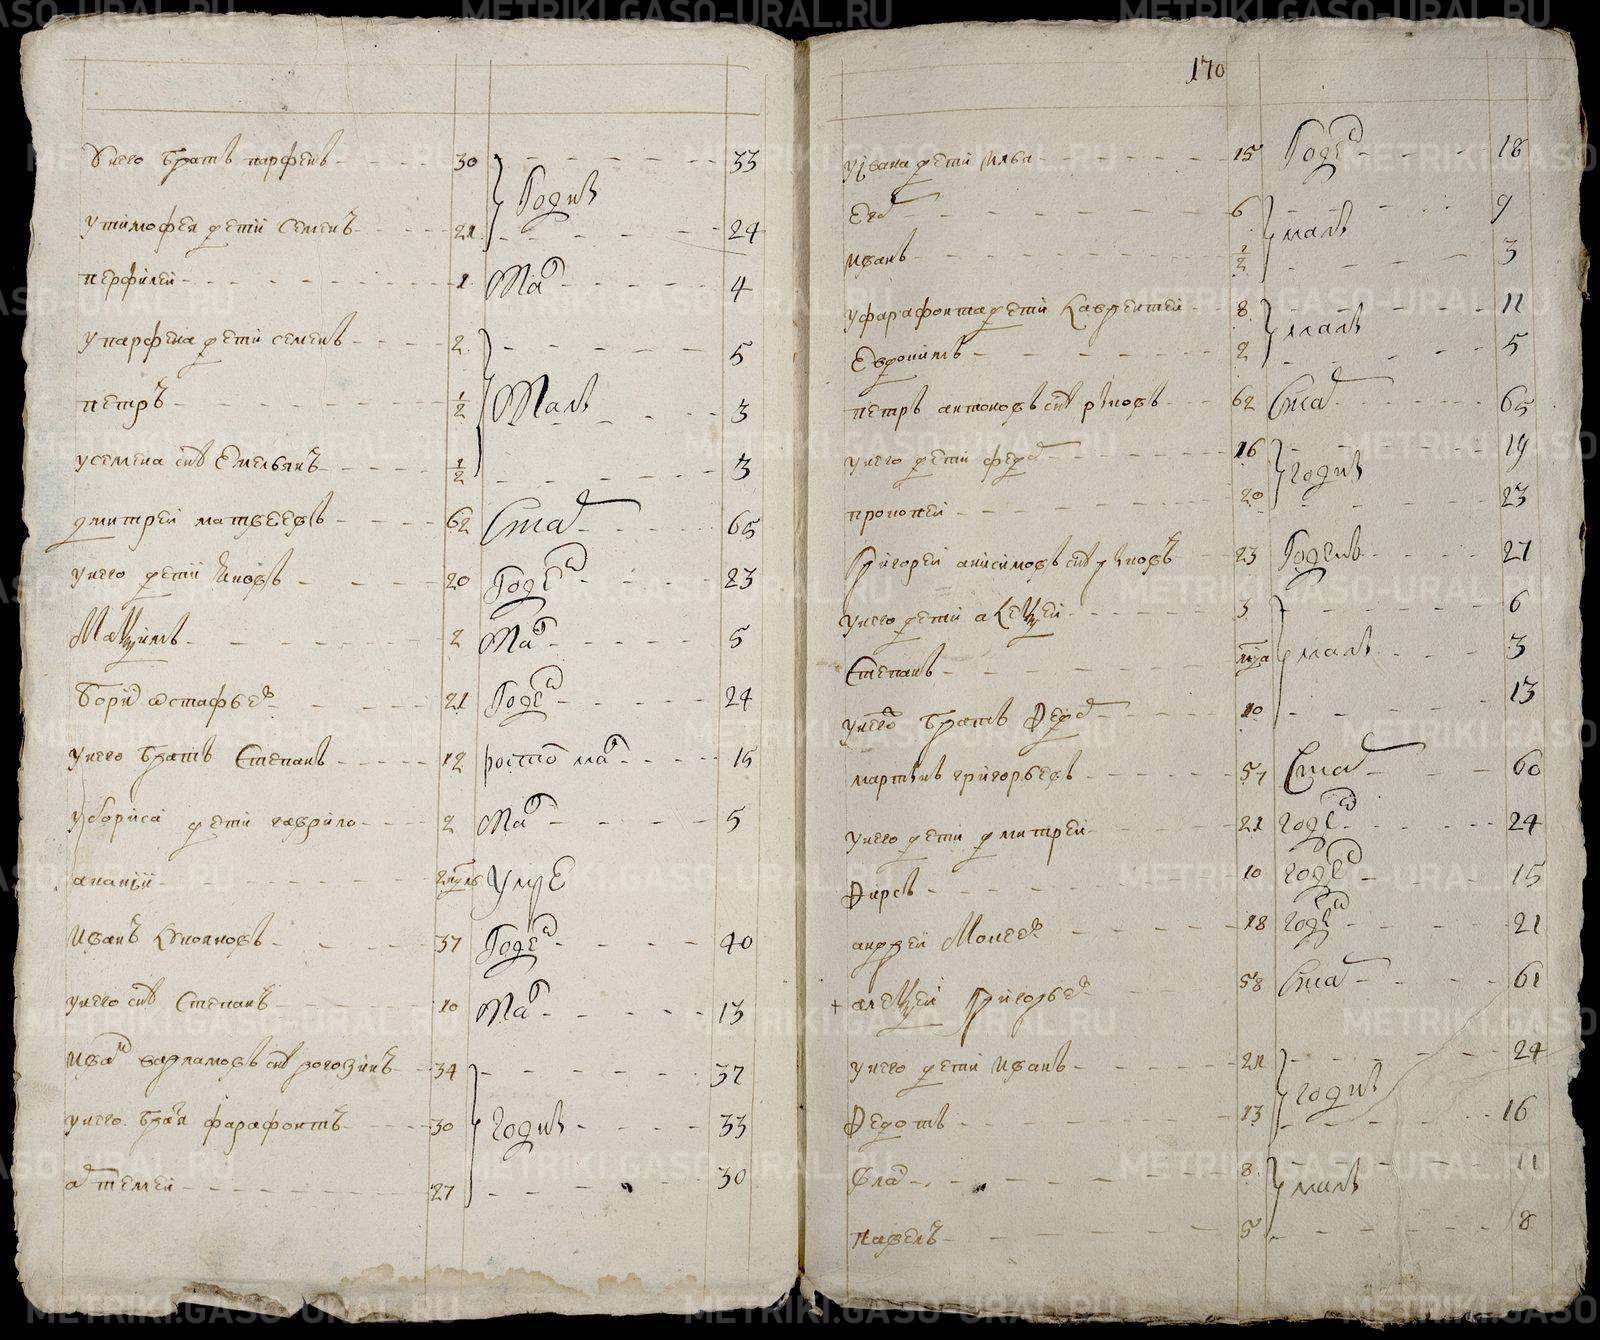 Унего братъ парфенъ 30 33
Годнъ
утимофея дети семенъ 21 24
перфилей 1 Мал 4
упарфена дети семенъ 2 5
петръ 1/2 Малъ 3
усемена снъ Емельянъ 1/2 3
дмитрей матвеевъ 62 Стар 65
унего дети 20 Годен 23
Маѯимъ 2 Мал 5
Борис остафьев 21 Годен 24
унего братъ Степанъ 12 ростом мал 15
убориса дети гаврило 2 Мал 5
ананiи Умре
Иванъ 37 Годен 40
унего снъ Степанъ 10 Мал 13
Иван варламовъ снъ рогозинъ 34 37
унего братя фарафонтъ 30 годнъ 33
артемеи 27 30
170
уiвана дети илья 15 Годен 18
Егор 6 9
малъ
Иванъ 1/2 3
уфарафонта дети Лаврентеи 8 11
малъ
Евдокимъ 2 5
петръ антоновъ снъ 62 Стар 65
унего дети федор 16 19
годнъ
прокопеи 20 23
Григорей анисимовъ снъ 23 Годенъ 27
унего дети алеѯей 3 6
Степанъ малъ 3
унего братъ Ѳедор 10 13
мартынъ григорьевъ 57 Стар 60
унего дети дмитреи 21 годен 24
Ѳирсъ 10 годен 15
андрей Моисеев 18 годен 21
+ алеѯей Григорьев 58 Стар 61
унего дети Иванъ 21 24
годнъ
Ѳедотъ 13 16
Влас 8 11
малъ
павелъ 5 8
METRIKI.GASO-URAL.RU